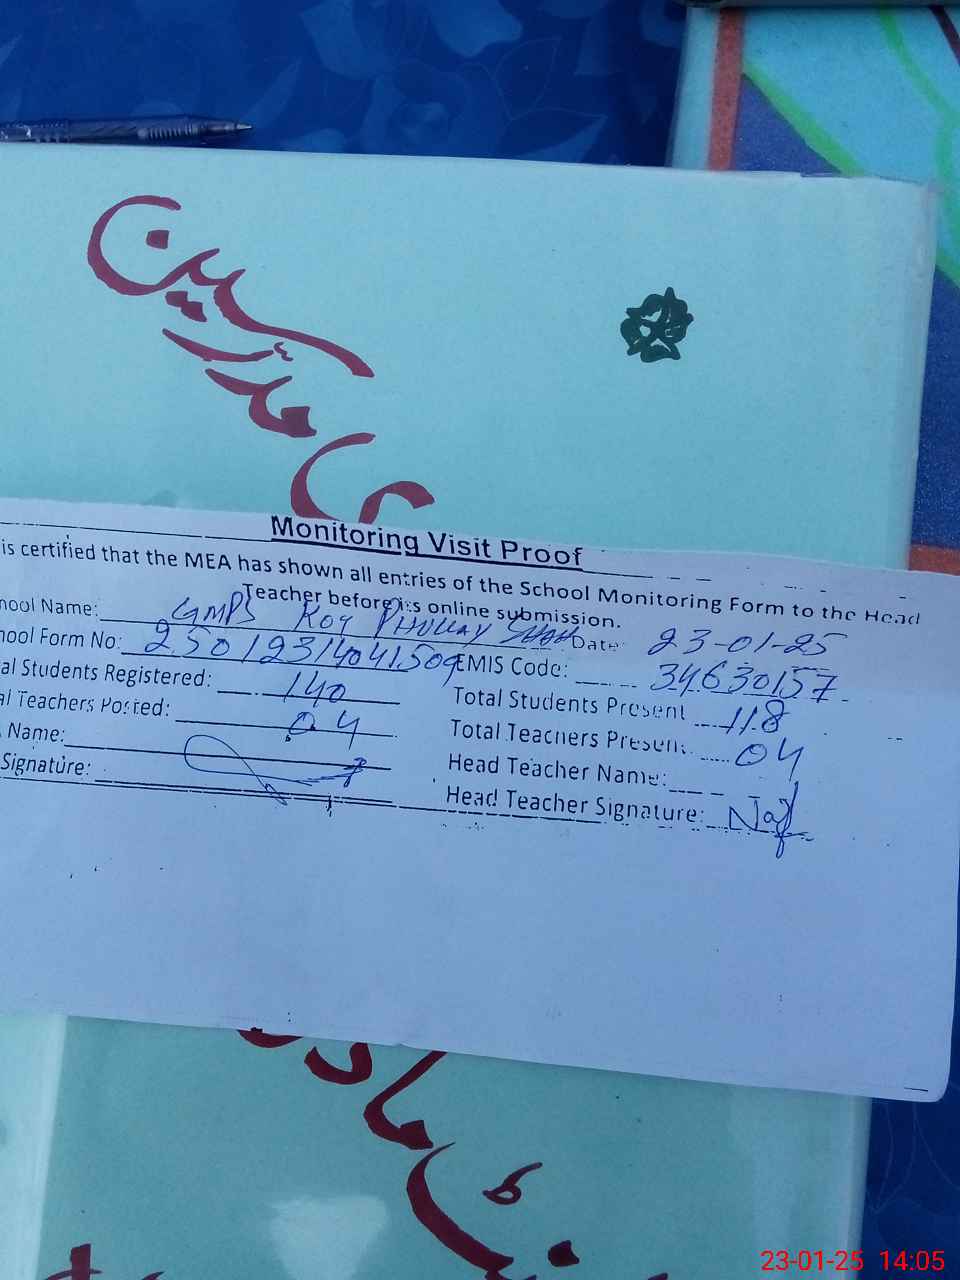 مدرسین
Monitoring Visit Proof
is certified that the MEA has shown all entries of the School Monitoring Form to the Head
Teacher before its online submission.
hool Name: GMPS Koy Phullay Shah Date: 23-01-25
hool Form No: 25012314041509 EMIS Code: 34630157
al Students Registered: 140 Total Students Present 118
al Teachers Posted: 04 Total Teachers Present: 04
Name: Head Teacher Name:
Signature: Head Teacher Signature:
23-01-25 14:05